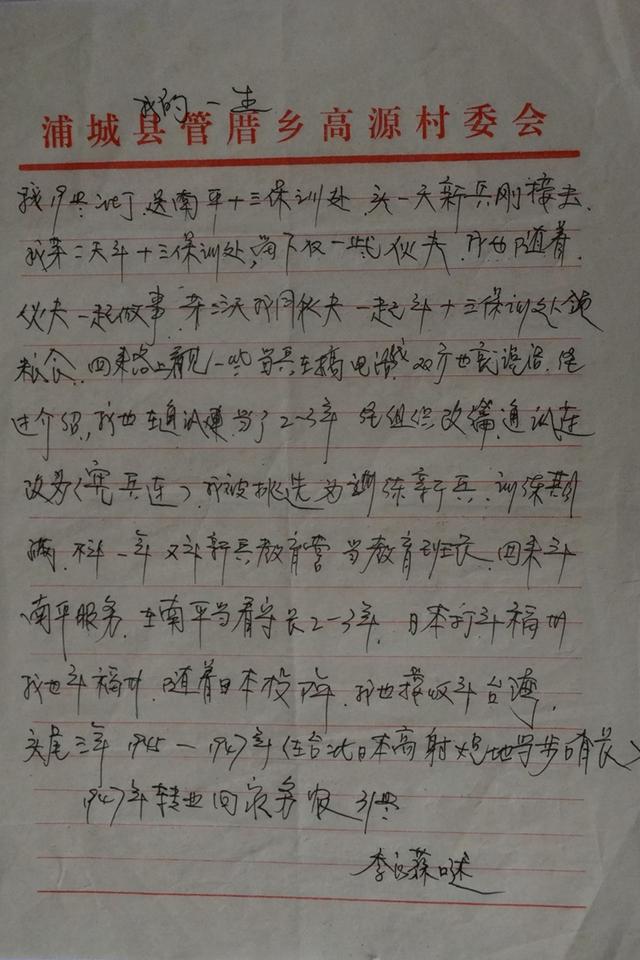 我的一生
浦城县管厝乡高源村委会
我19岁 送南平十三保训处 头一天新兵刚接去
我第二天斗十三保训处,留下仅一些伙夫 我也随着
伙夫一起做事 第三天我同伙夫一起斗十三保训处领
粮食 回来路上看见一些当兵在搞电话 双方也
进介绍,我也在通训连当了2-3年 经组织改编通训连
改为(宪兵连)我被挑选为训练新兵 训练期
满 不 一年又斗新兵教育营当教育班长 回来斗
南平服务 在南平当看守长2-3年 日本打斗福州
我也斗福州 随着日本投降 我也接收斗台湾
头尾三年1945-1947年(在台北日本高射炮地当步哨长)
1947年转业回家务农